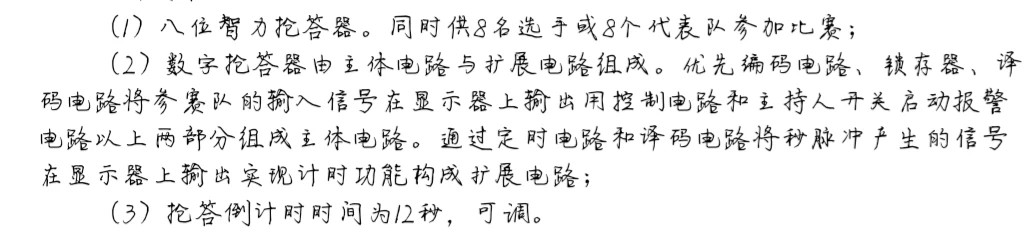 (1)八位智力抢答器。同时供8名选手或8个代表队参加比赛;
(2)数字抢答器由主体电路与扩展电路组成。优先编码电路、锁存器、译
码电路将参赛队的输入信号在显示器上输出用控制电路和主持人开关启动报警
电路以上两部分组成主体电路。通过定时电路和译码电路将秒脉冲产生的信号
在显示器上输出实现计时功能构成扩展电路;
(3)抢答倒计时时间为12秒,可调。